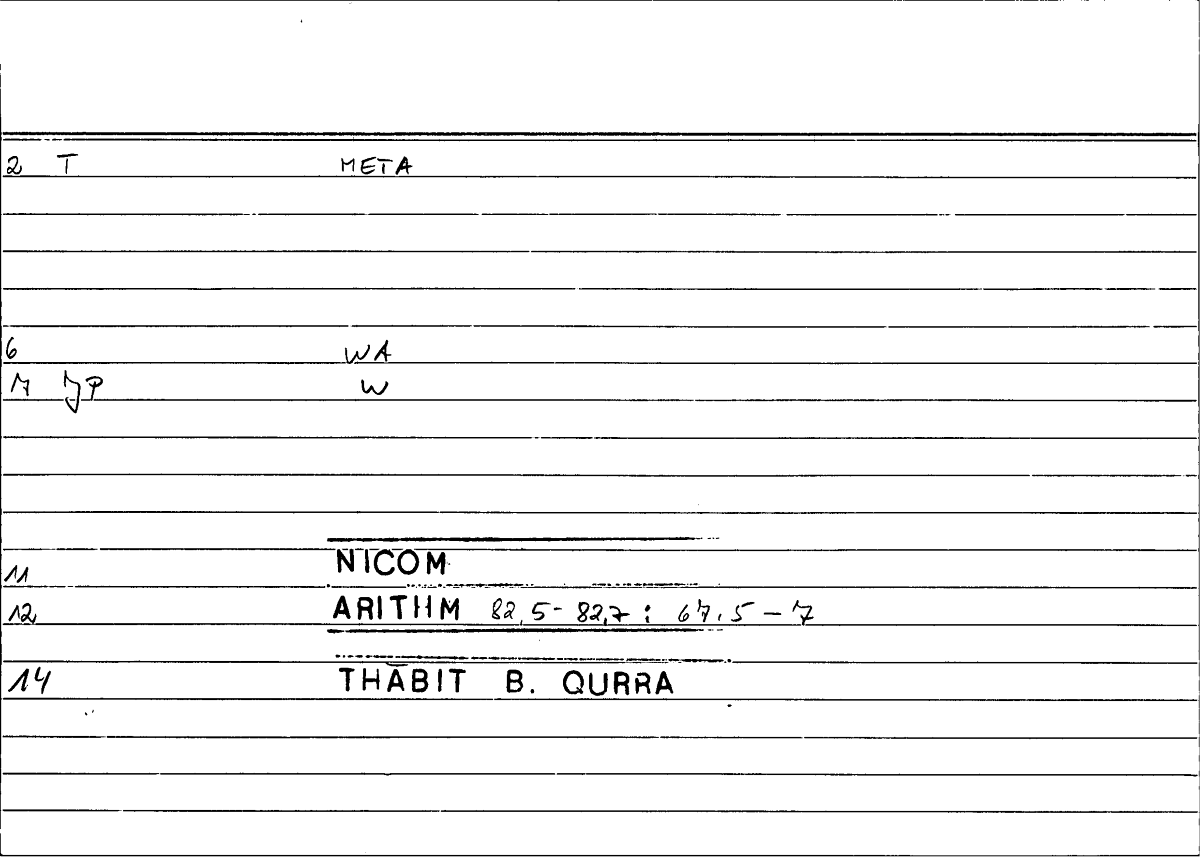 2 T META
6 WA
7 JP W
11 NICOM
12 ARITHM 82,5-82,7 : 67.5-7
14 THĀBIT B. QURRA